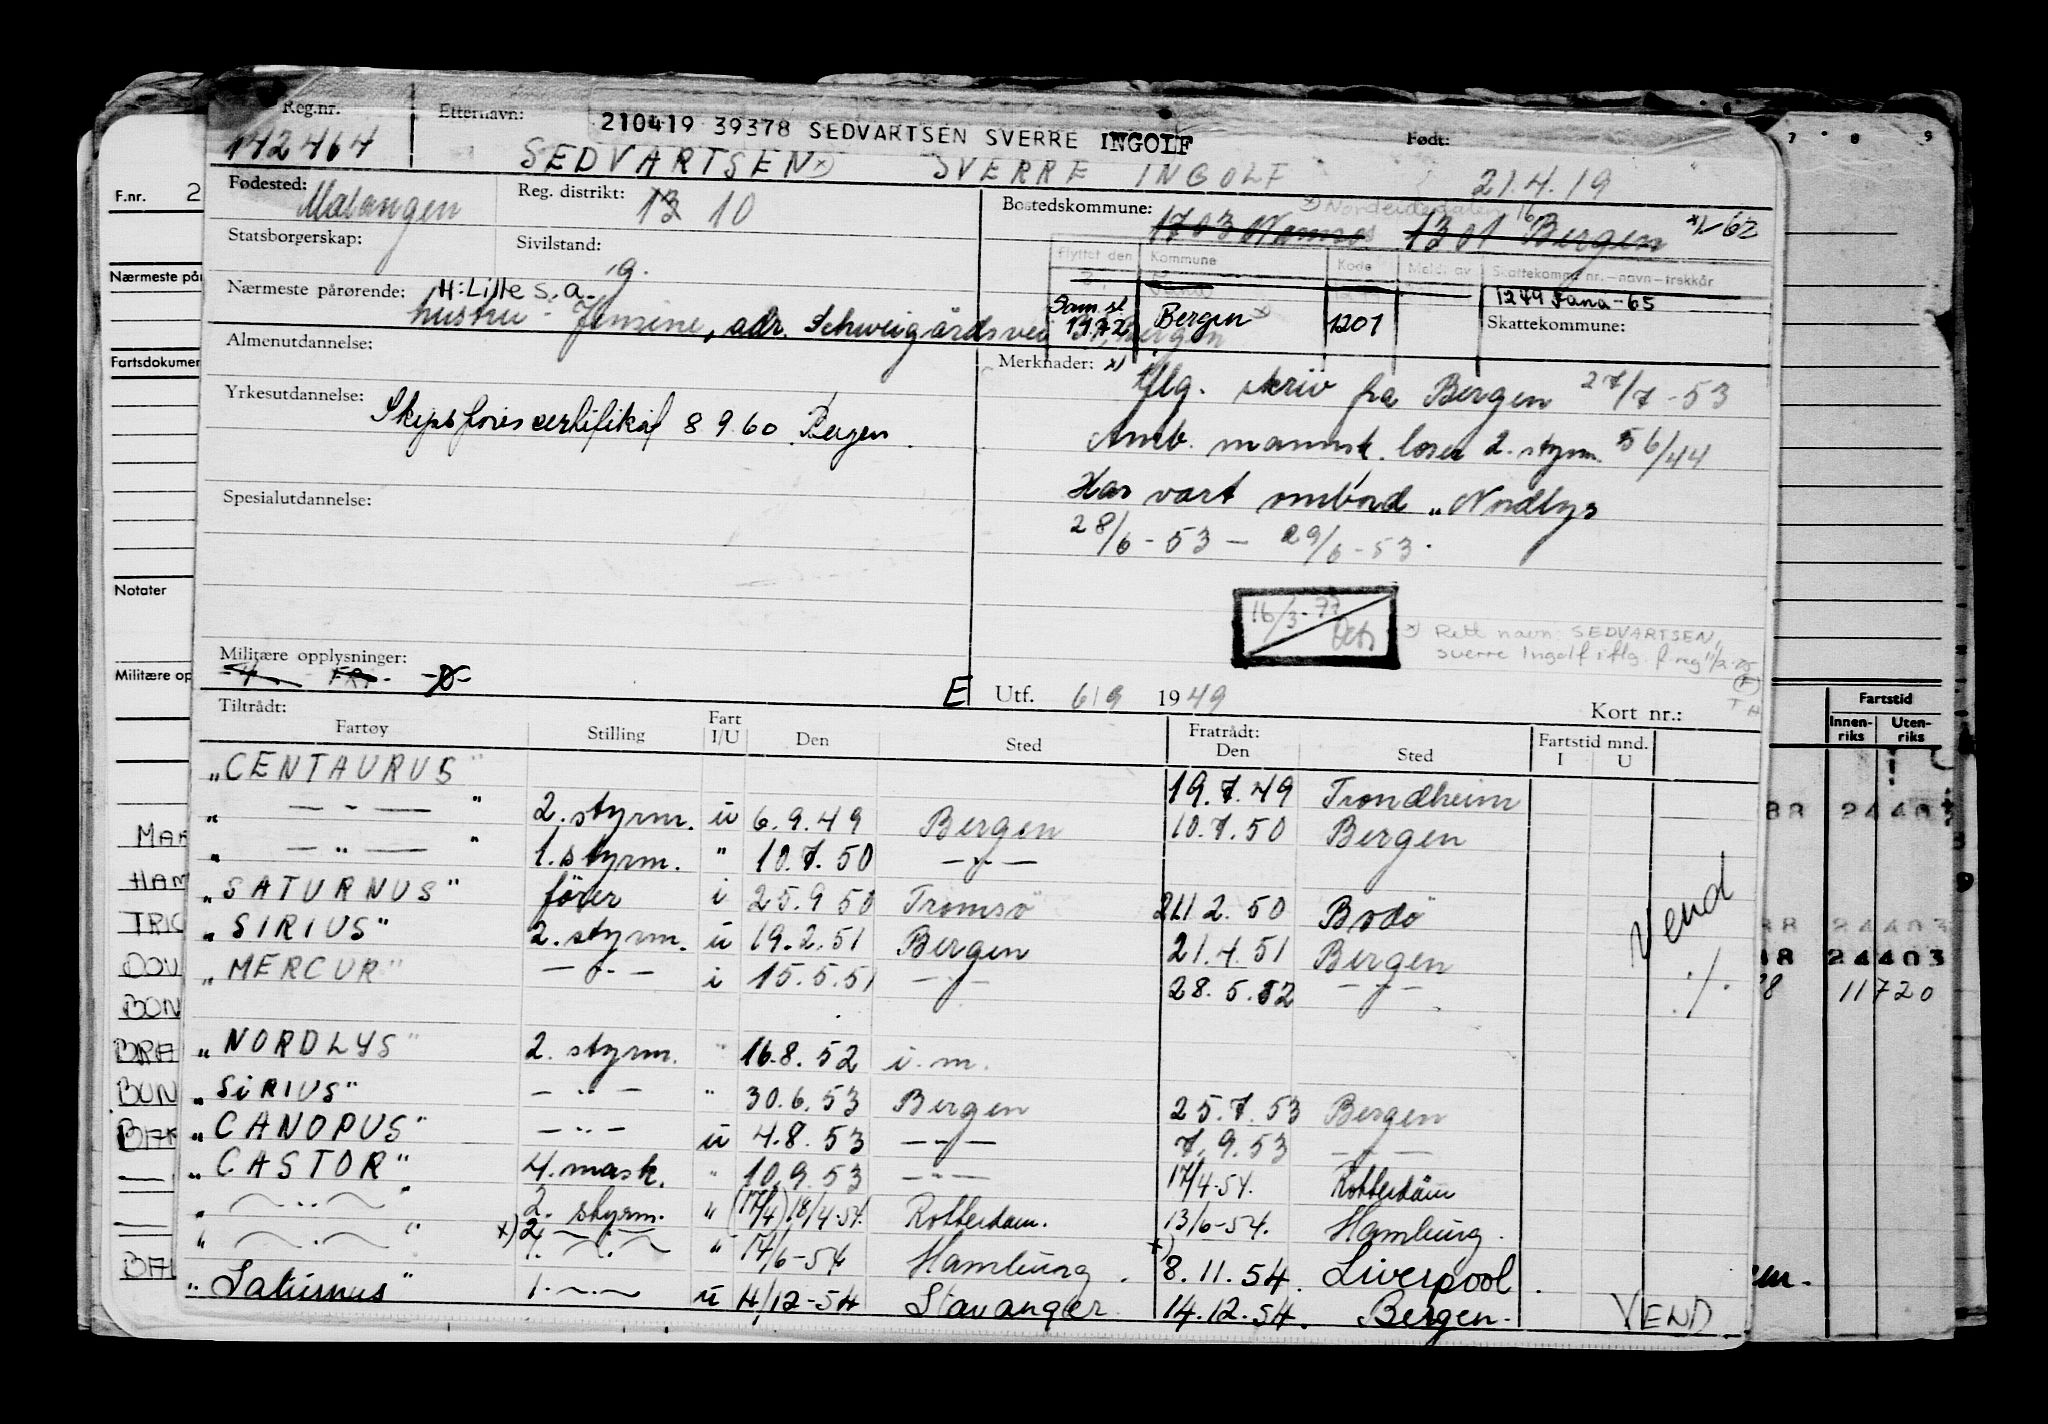 Reg.nr. Etternavn: 210419 39378 SEDVARTSEN SVERRE INGOLF Født:
142464 SEDVARTSEN SVERRE INGOLF 21.4.19
Fødested: Malangen Reg. distrikt: 13 10 Bostedskommune: 1703 Namsos 1301 Bergen *1/-62
Statsborgerskap: Sivilstand: g.
Flyttet den Kommune Kode Meldt av Skattekomm nr.—navn—trekkår
1249 Fana-65
Nærmeste pårørende: H: Lille s.a.
hustru - Jensine, adr. Schweigårdsvei Bergen
Sam. st. 1972 Bergen 1201 Skattekommune:
Almenutdannelse:
Merknader: *) Iflg. skriv fra Bergen 27/7-53
Yrkesutdannelse: Skipsförercertifikat 8 9 60 Bergen.
Amb. mannsk. loser 2. styrm. 56/44
Har vært ombord „Nordlys
28/6-53 — 29/6-53.
Spesialutdannelse:
16/3-77
*) Rett navn: SEDVARTSEN,
Sverre Ingolf iflg. f.reg
Militære opplysninger:
E Utf. 6/9 1949 Kort nr.:
Tiltrådt: Fratrådt: Fartstid mnd.
Fartøy Stilling Fart I/U Den Sted Den Sted I U
„CENTAURUS" 19.7.49 Trondheim
„ — " — " 2. styrm. u 6.9.49 Bergen 10.7.50 Bergen
„ — " — " 1. styrm. " 10.7.50 — " —
„SATURNUS" förer i 25.9 50 Tromsö 2.50 Bodö
„SIRIUS" 2. styrm. u 19.2.51 Bergen 21.4.51 Bergen
„MERCUR" — " — i 15.5.51 — " — 28.5.52 — " —
Vend
./.
„NORDLYS" 2. styrm. " 16.8.52 i.m.
„SiRIUS" — " — " 30.6.53 Bergen 25.7.53 Bergen
„CANOPUS" — " — u 4.8.53 — " — 7.9.53 — " —
„CASTOR" 4. mask. " 10.9.53 — " — 17/4-54. Rotterdam
„ — " — " 2. styrm. " (17/4) 18/4-54. Rotterdam. 13/6-54. Hamburg.
„ — " — " *) 2. — " — " 14/6-54 Hamburg. *) 8.11.54. Liverpool.
„Saturnus" 1. — " — u 4/12-54 Stavanger. 14.12.54. Bergen.
VEND
F.nr. 2
Nærmeste pår
Fartsdokumen
Notater
Militære op
MAR
HAM
TRIC
DOV
BON
BRA
BUN
BAK
7 8 9
Fartstid
Innen-riks Uten-riks
88 24403
88 24403
88 24403
11720